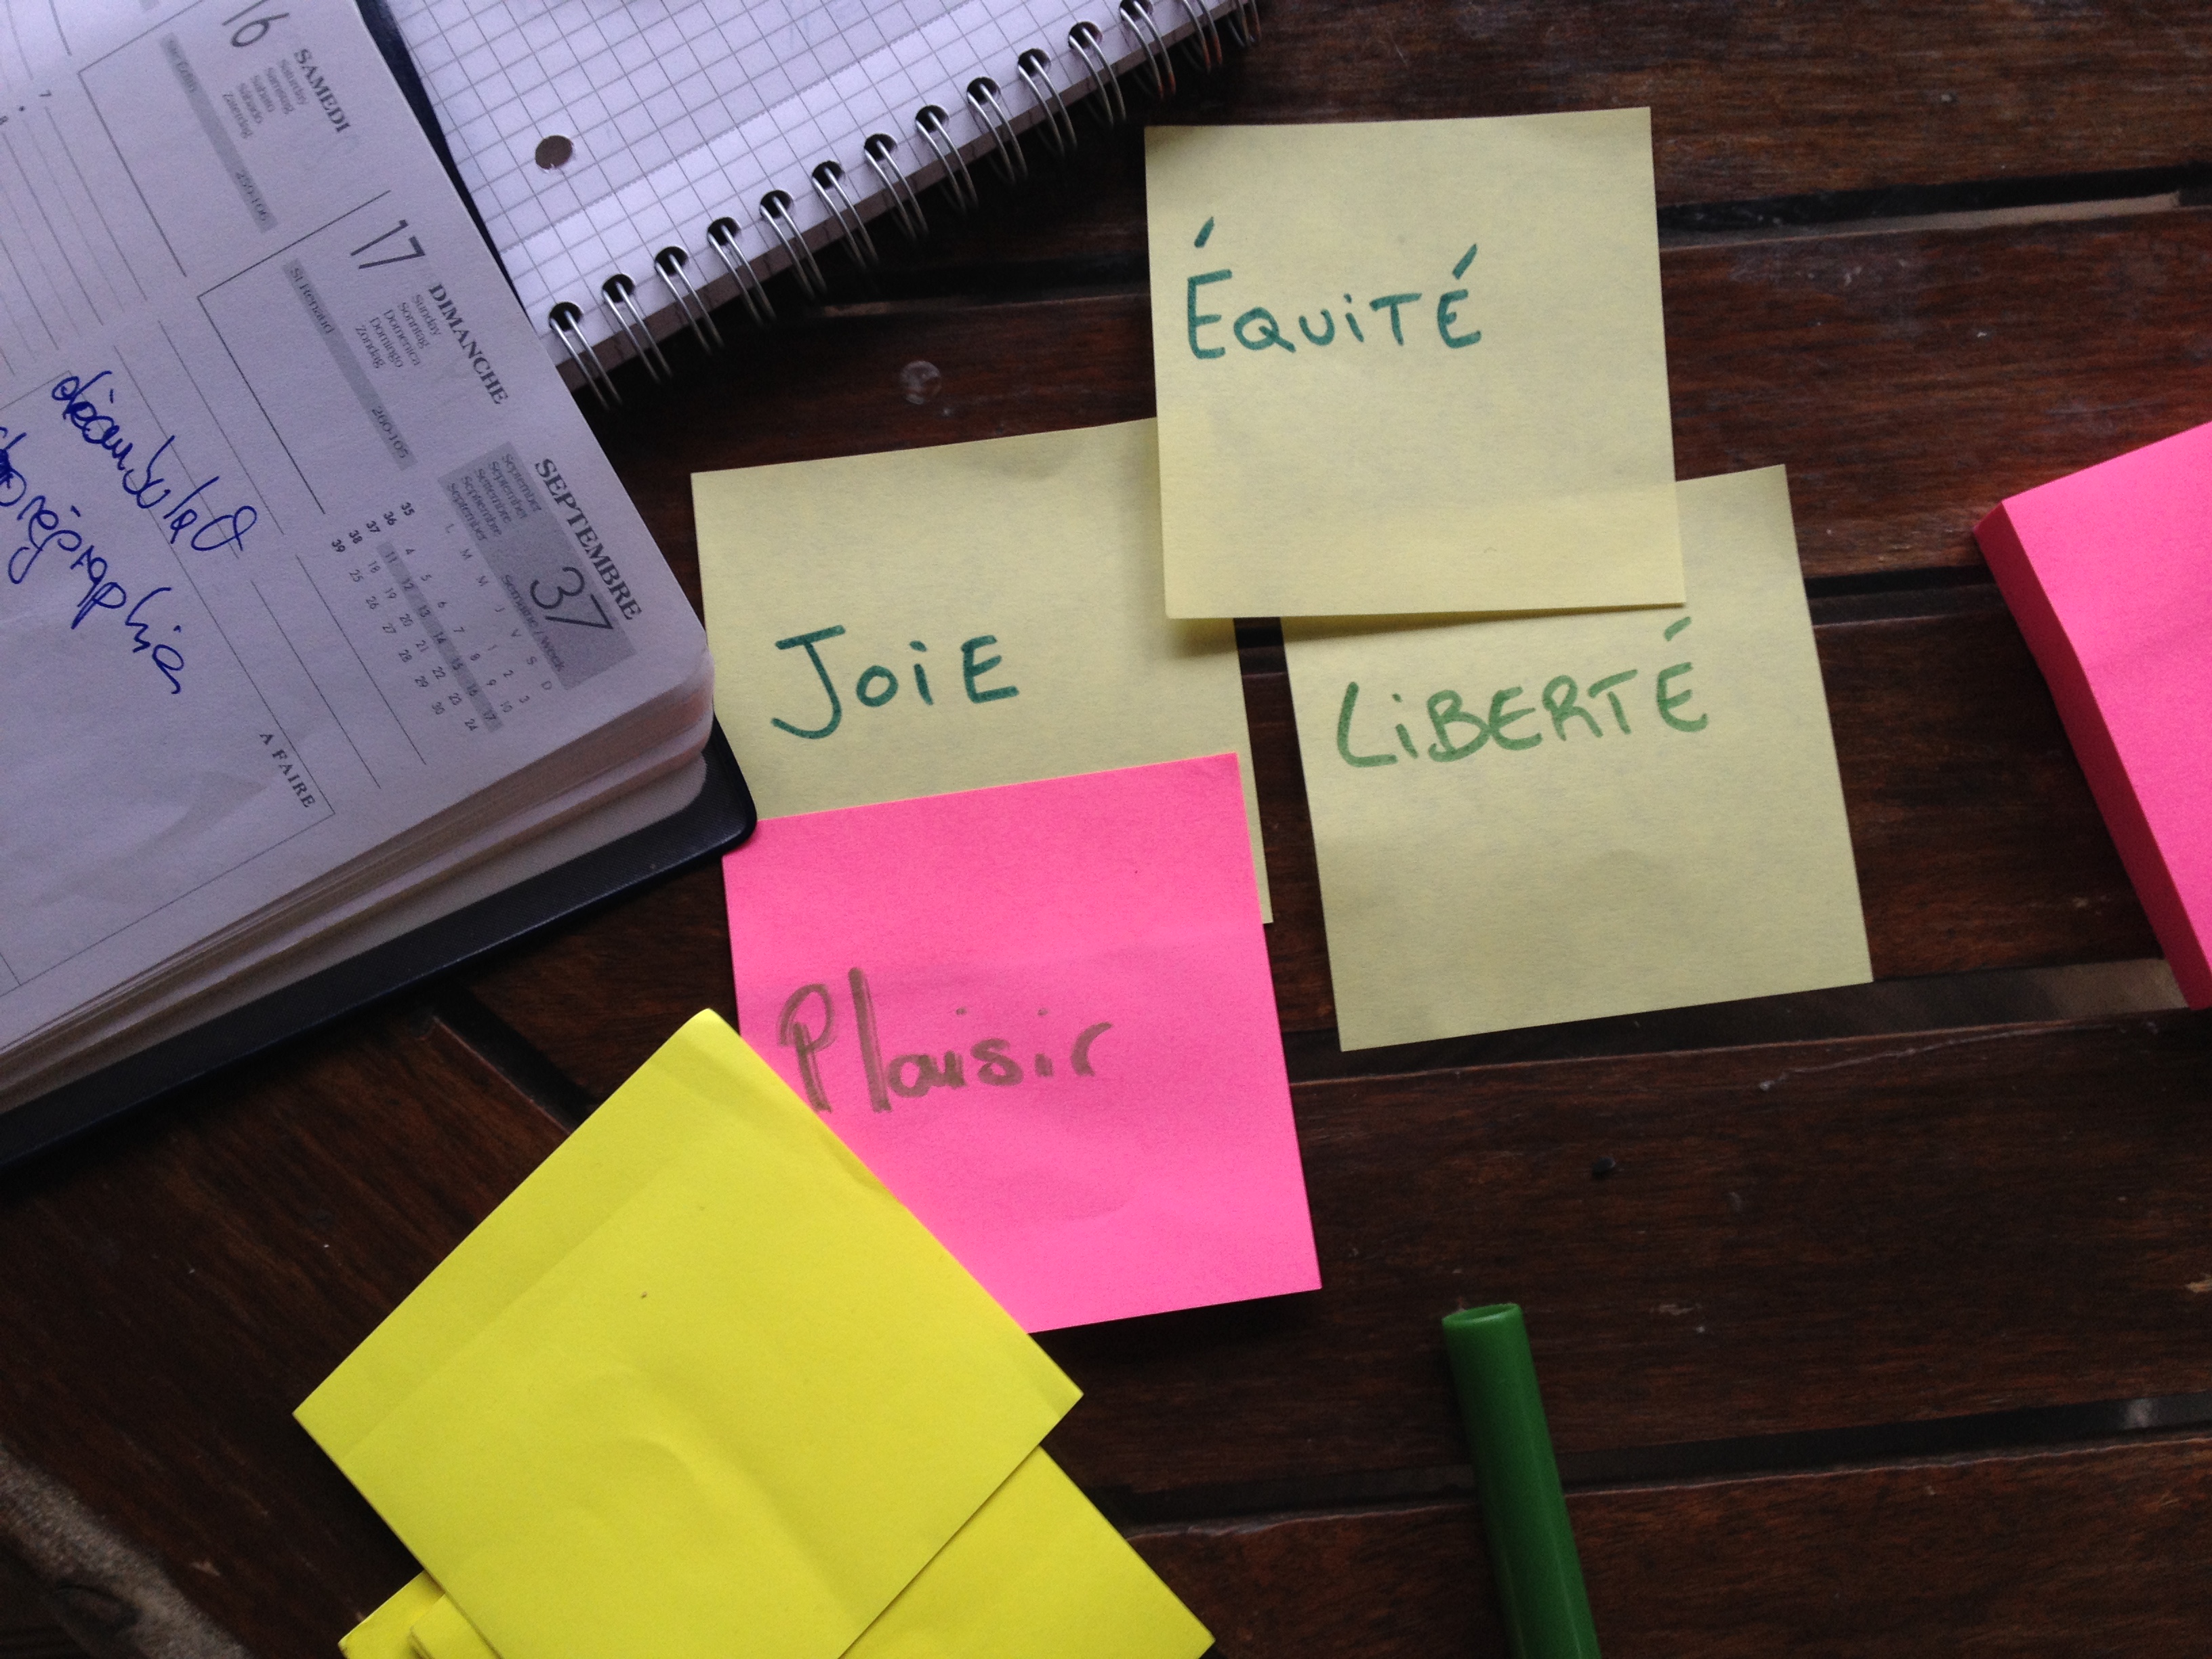 16 SAMEDI
Saturday
Samstag
Sabato
Sábado
Zaterdag
259-106
17 DIMANCHE
Sunday
Sonntag
Domenica
Domingo
Zondag
St Renaud
260-105
SEPTEMBRE
September
September
Settembre
Septiembre
September
37
Semaine / Week
L M M J V S D
35 1 2 3
36 4 5 6 7 8 9 10
37 11 12 13 14 15 16 17
38 18 19 20 21 22 23 24
39 25 26 27 28 29 30
A FAIRE
ÉQUITÉ
JOIE
LIBERTÉ
Plaisir